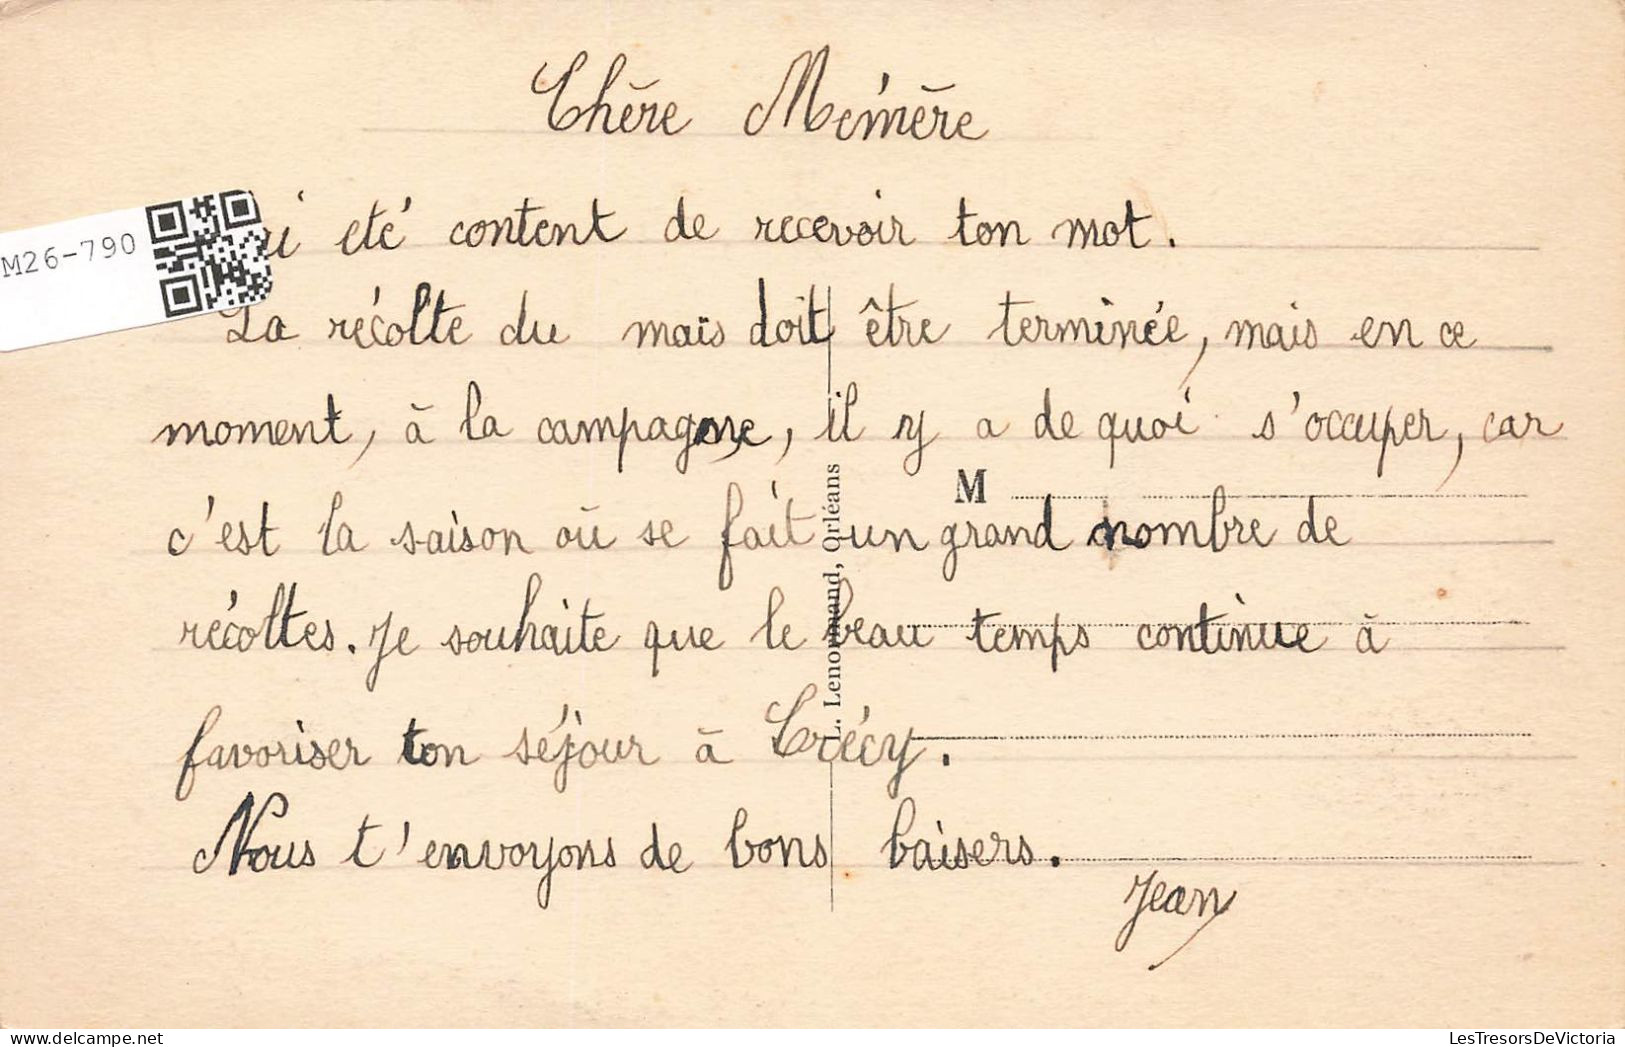 Chère Mémère
ai eté content de recevoir ton mot.
M26-790
La récolte du maïs doit être terminée, mais en ce
moment, à la campagne, il y a de quoi s'occuper, car
M
c'est la saison où se fait un grand nombre de
récoltes. Je souhaite que le beau temps continue à
favoriser ton séjour à Crécy.
Nous t'envoyons de bons baisers.
Jean
L. Lenormand, Orléans
LesTresorsDeVictoria.com